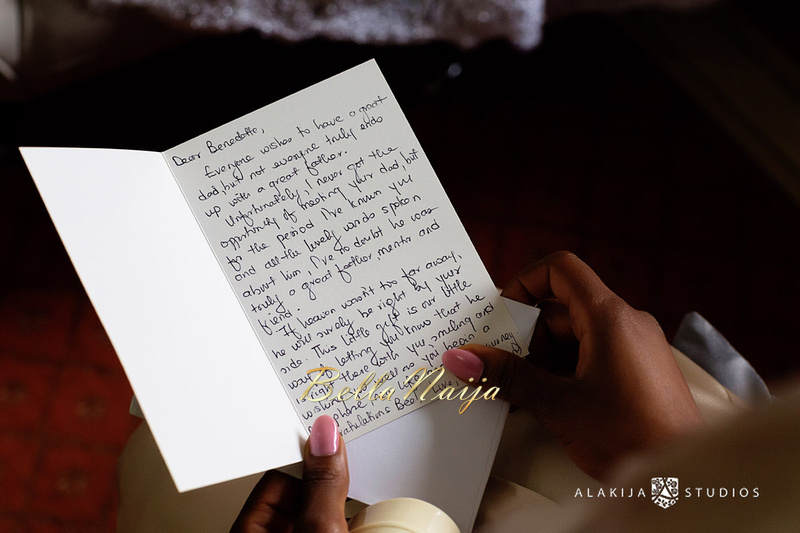 Dear Benedotta,
Everyone wishes to have a great
dad, but not everyone truly ends
up with a great father.
Unfortunately, I never got the
opportunity of meeting your dad, but
for the period I've known you
and all the lovely words spoken
about him, I've no doubt he was
truly a great father, mentor and
friend.
If heaven wasn't too far away,
he will surely be right by your
side. This little gift is our little
way to letting you know that he
is right here with you, smiling and
wishing you well as you begin a
new phase
Congratulations
BellaNaija
ALAKIJA STUDIOS